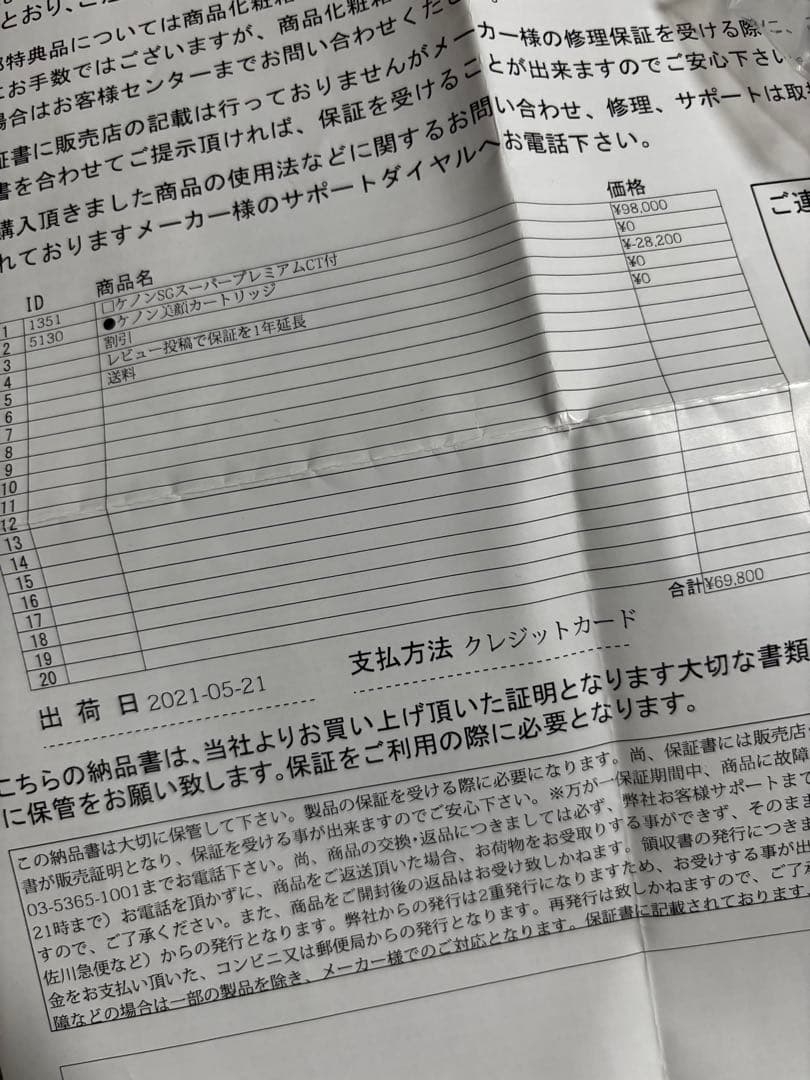 とおり、ご
特典品については商品化粧箱
お手数ではございますが、商品化粧箱
場合はお客様センターまでお問い合わせくだ
証書に販売店の記載は行っておりませんがメーカー様の修理保証を受ける際に、
書を合わせてご提示頂ければ、保証を受けることが出来ますのでご安心下さい
購入頂きました商品の使用法などに関するお問い合わせ、修理、サポートは取
れておりますメーカー様のサポートダイヤルへお電話下さい。
ID 商品名 価格
1 1351 □ケノンSGスーパープレミアムCT付 ¥98,000
2 5130 ●ケノン美顔カートリッジ ¥0
3 割引 ¥-28,200
4 レビュー投稿で保証を1年延長 ¥0
5 送料 ¥0
6
7
8
9
10
11
12
13
14
15
16
17
18
19
20
合計 ¥69,800
ご連
出荷日 2021-05-21 支払方法 クレジットカード
こちらの納品書は、当社よりお買い上げ頂いた証明となります大切な書類
に保管をお願い致します。保証をご利用の際に必要となります。
この納品書は大切に保管して下さい。製品の保証を受ける際に必要になります。尚、保証書には販売店
書が販売証明となり、保証を受ける事が出来ますのでご安心下さい。※万が一保証期間中、商品に故障
03-5365-1001までお電話下さい。尚、商品の交換・返品につきましては必ず、弊社お客様サポートまで
21時まで）お電話を頂かずに、商品をご返送頂いた場合、お荷物をお受取りする事ができず、そのまま
すので、ご了承ください。また、商品をご開封後の返品はお受け致しかねます。領収書の発行につきま
佐川急便など）からの発行となります。弊社からの発行は2重発行になりますため、お受けする事が出
金をお支払い頂いた、コンビニ又は郵便局からの発行となります。再発行は致しかねますので、ご了承
障などの場合は一部の製品を除き、メーカー様でのご対応となります。保証書に記載されております